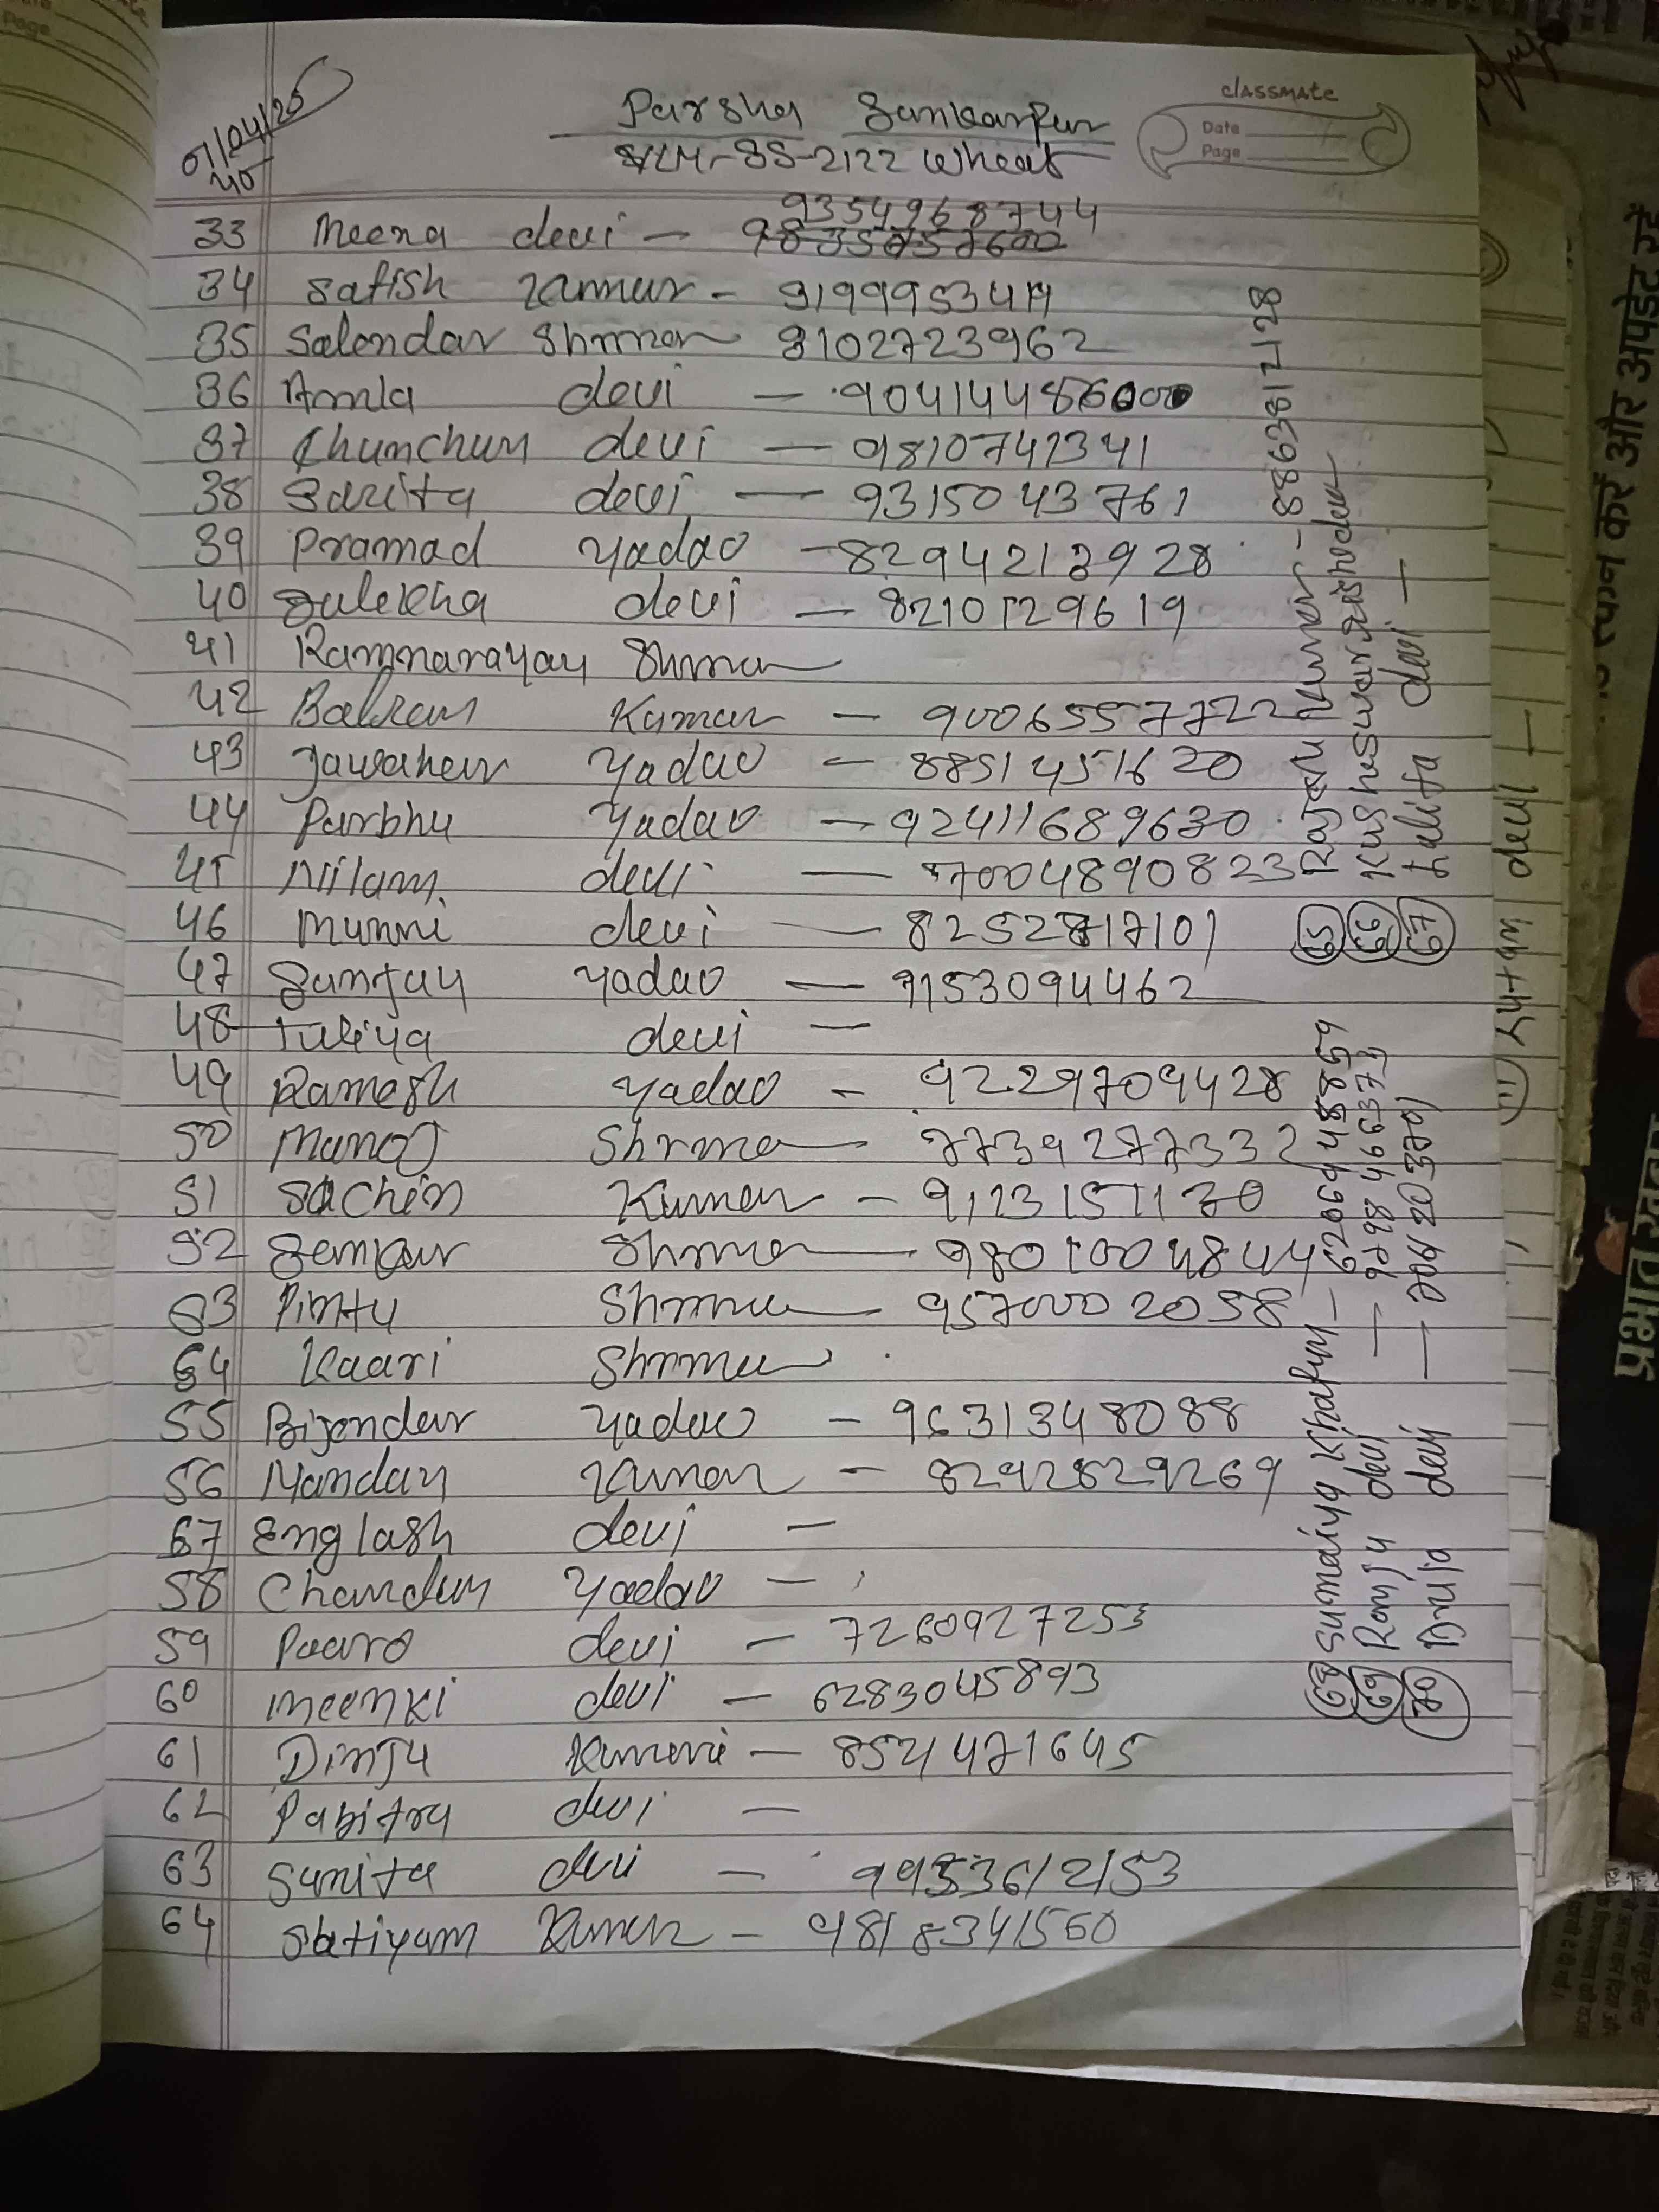 classmate
Date
Page
01/04/25
40
Parsha Sankarpur
SLM-SS-2122 Wheat
9354968744
33 Meena devi - 98350757600
34 Satish Kumar - 9199953419
35 Salendar Shrma 9102723962
36 Amla devi - 9041448600
37 Chunchun devi - 9810741341
38 Sarita devi - 9315043761
39 Pramad Yadao - 82942139 28
40 Sulekha devi - 8210129619
41 Ramnarayan Shrma
42 Balram Kumar - 9006557722
43 Jawahar Yadao - 8851451620
44 Parbhu Yadao - 92411689630
45 Nilam devi - 7004890823
46 Munni devi - 8252817101
47 Sanjay Yadao - 9153094462
48 Tuliya devi -
49 Ramesh Yadao - 9229709428
50 Manoj Shrma - 7739277332
51 Sachin Kumar - 9123151130
52 Sankar Shrma - 9801004844
53 Pintu Shrma - 9570002058
54 Kaari Shrma
55 Bijendar Yadao - 9631348088
56 Nandan Kumar - 8292829269
57 Englash devi -
58 Chandan Yadao -
59 Paaro devi - 7260927253
60 Meenki devi - 6283045893
61 Dinju Kumari - 8521471645
62 Pabitra devi -
63 Sunita devi - 9953612153
64 Satiyam Kumar - 9818341560
65 Rajan Kumar - 8863812128
66 Kusheswar
67 Lalita devi -
68 Sumaiya Khatun - 6206948859
69 Ranju devi - 9798466373
70 Druja devi - 7061203701
devi -
स्कैन करें और अपडेट रहें
प्रभात खबर